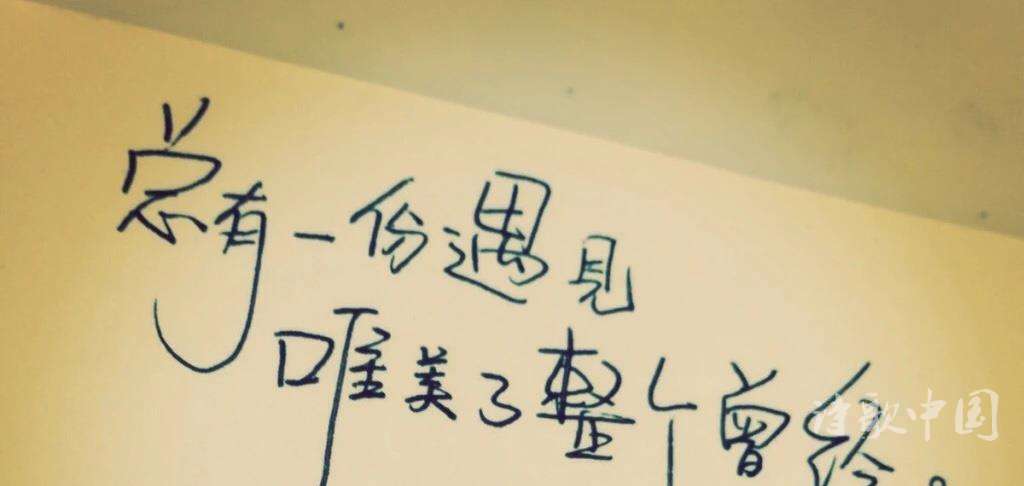 总有一份遇见
唯美了整个曾经。
诗歌中国